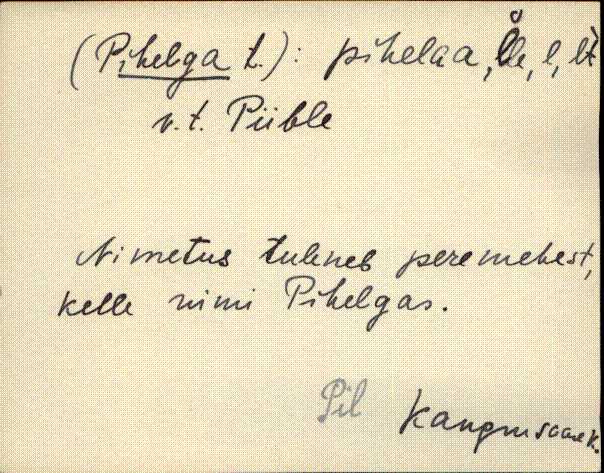 (Pihelga t.): pihelaa, le, l, lt
v.t. Püble
Nimetus tuleneb peremehest,
kelle nimi Pihelgas.
Pil
Kangur